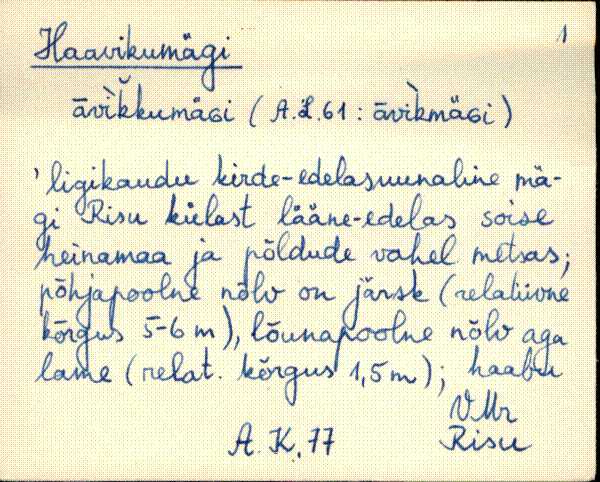 Haavikumägi 1
āvìkkumäGi (A.L.61: āvìkmäGi)
'ligikaudu kirde-edelasuunaline mä-
gi Risu külast lääne-edelas soise
heinamaa ja põldude vahel metsas;
põhjapoolne nõlv on järsk (relatiivne
kõrgus 5-6 m), lõunapoolne nõlv aga
lame (relat. kõrgus 1,5 m); haabu
VMr
A. K. 77 Risu